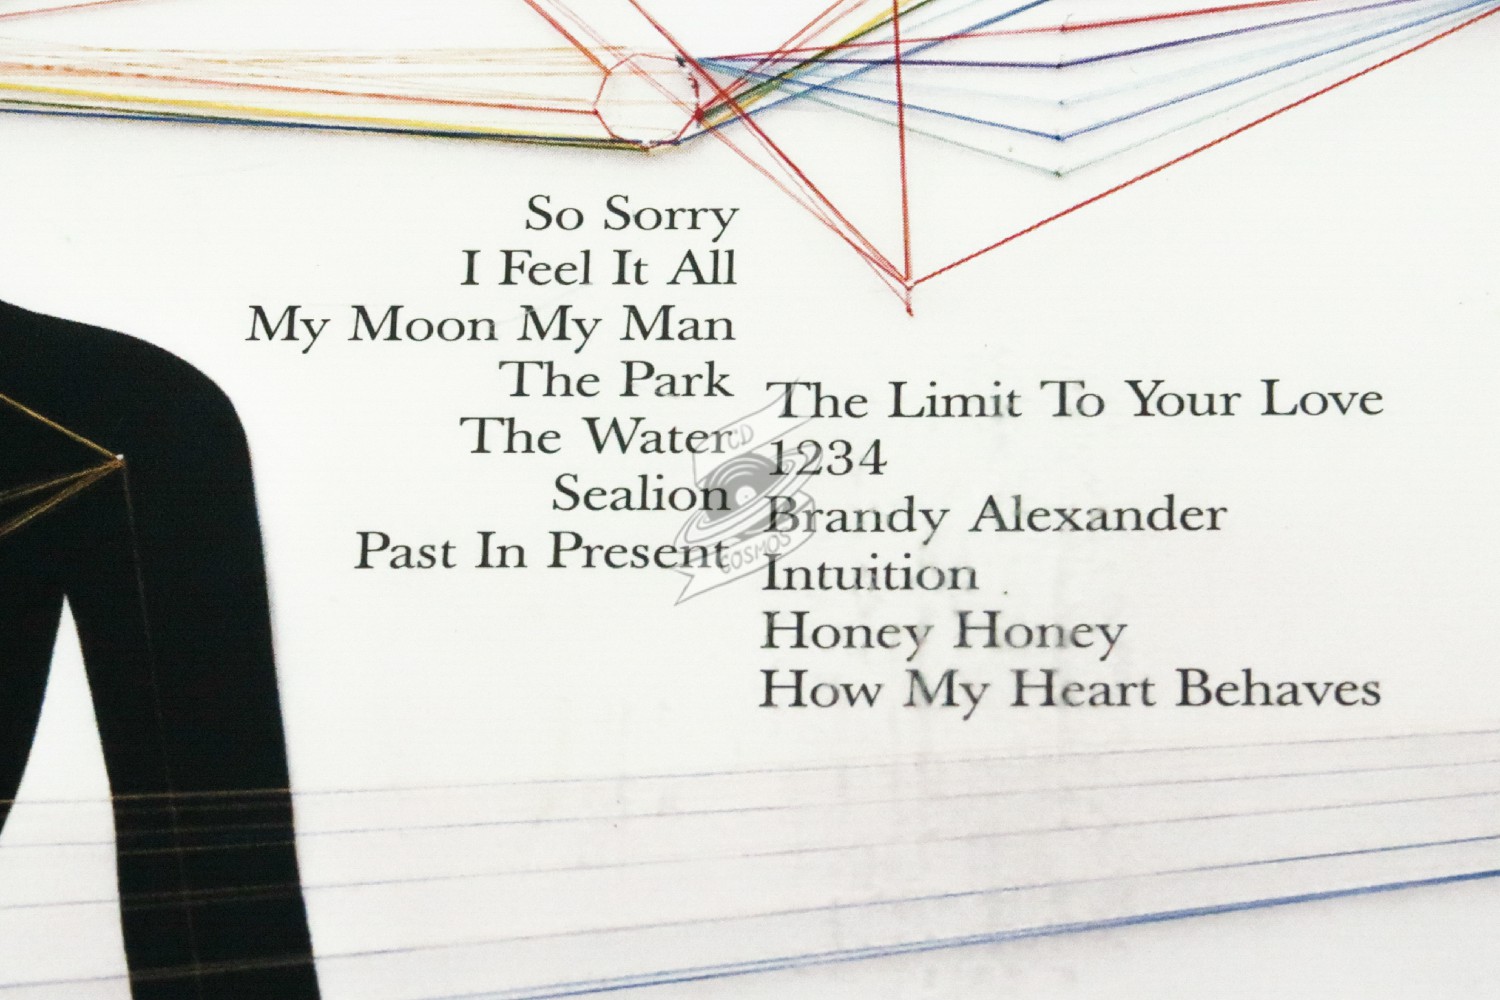 So Sorry
I Feel It All
My Moon My Man
The Park
The Water
Sealion
Past In Present
The Limit To Your Love
1234
Brandy Alexander
Intuition
Honey Honey
How My Heart Behaves
CD
COSMOS